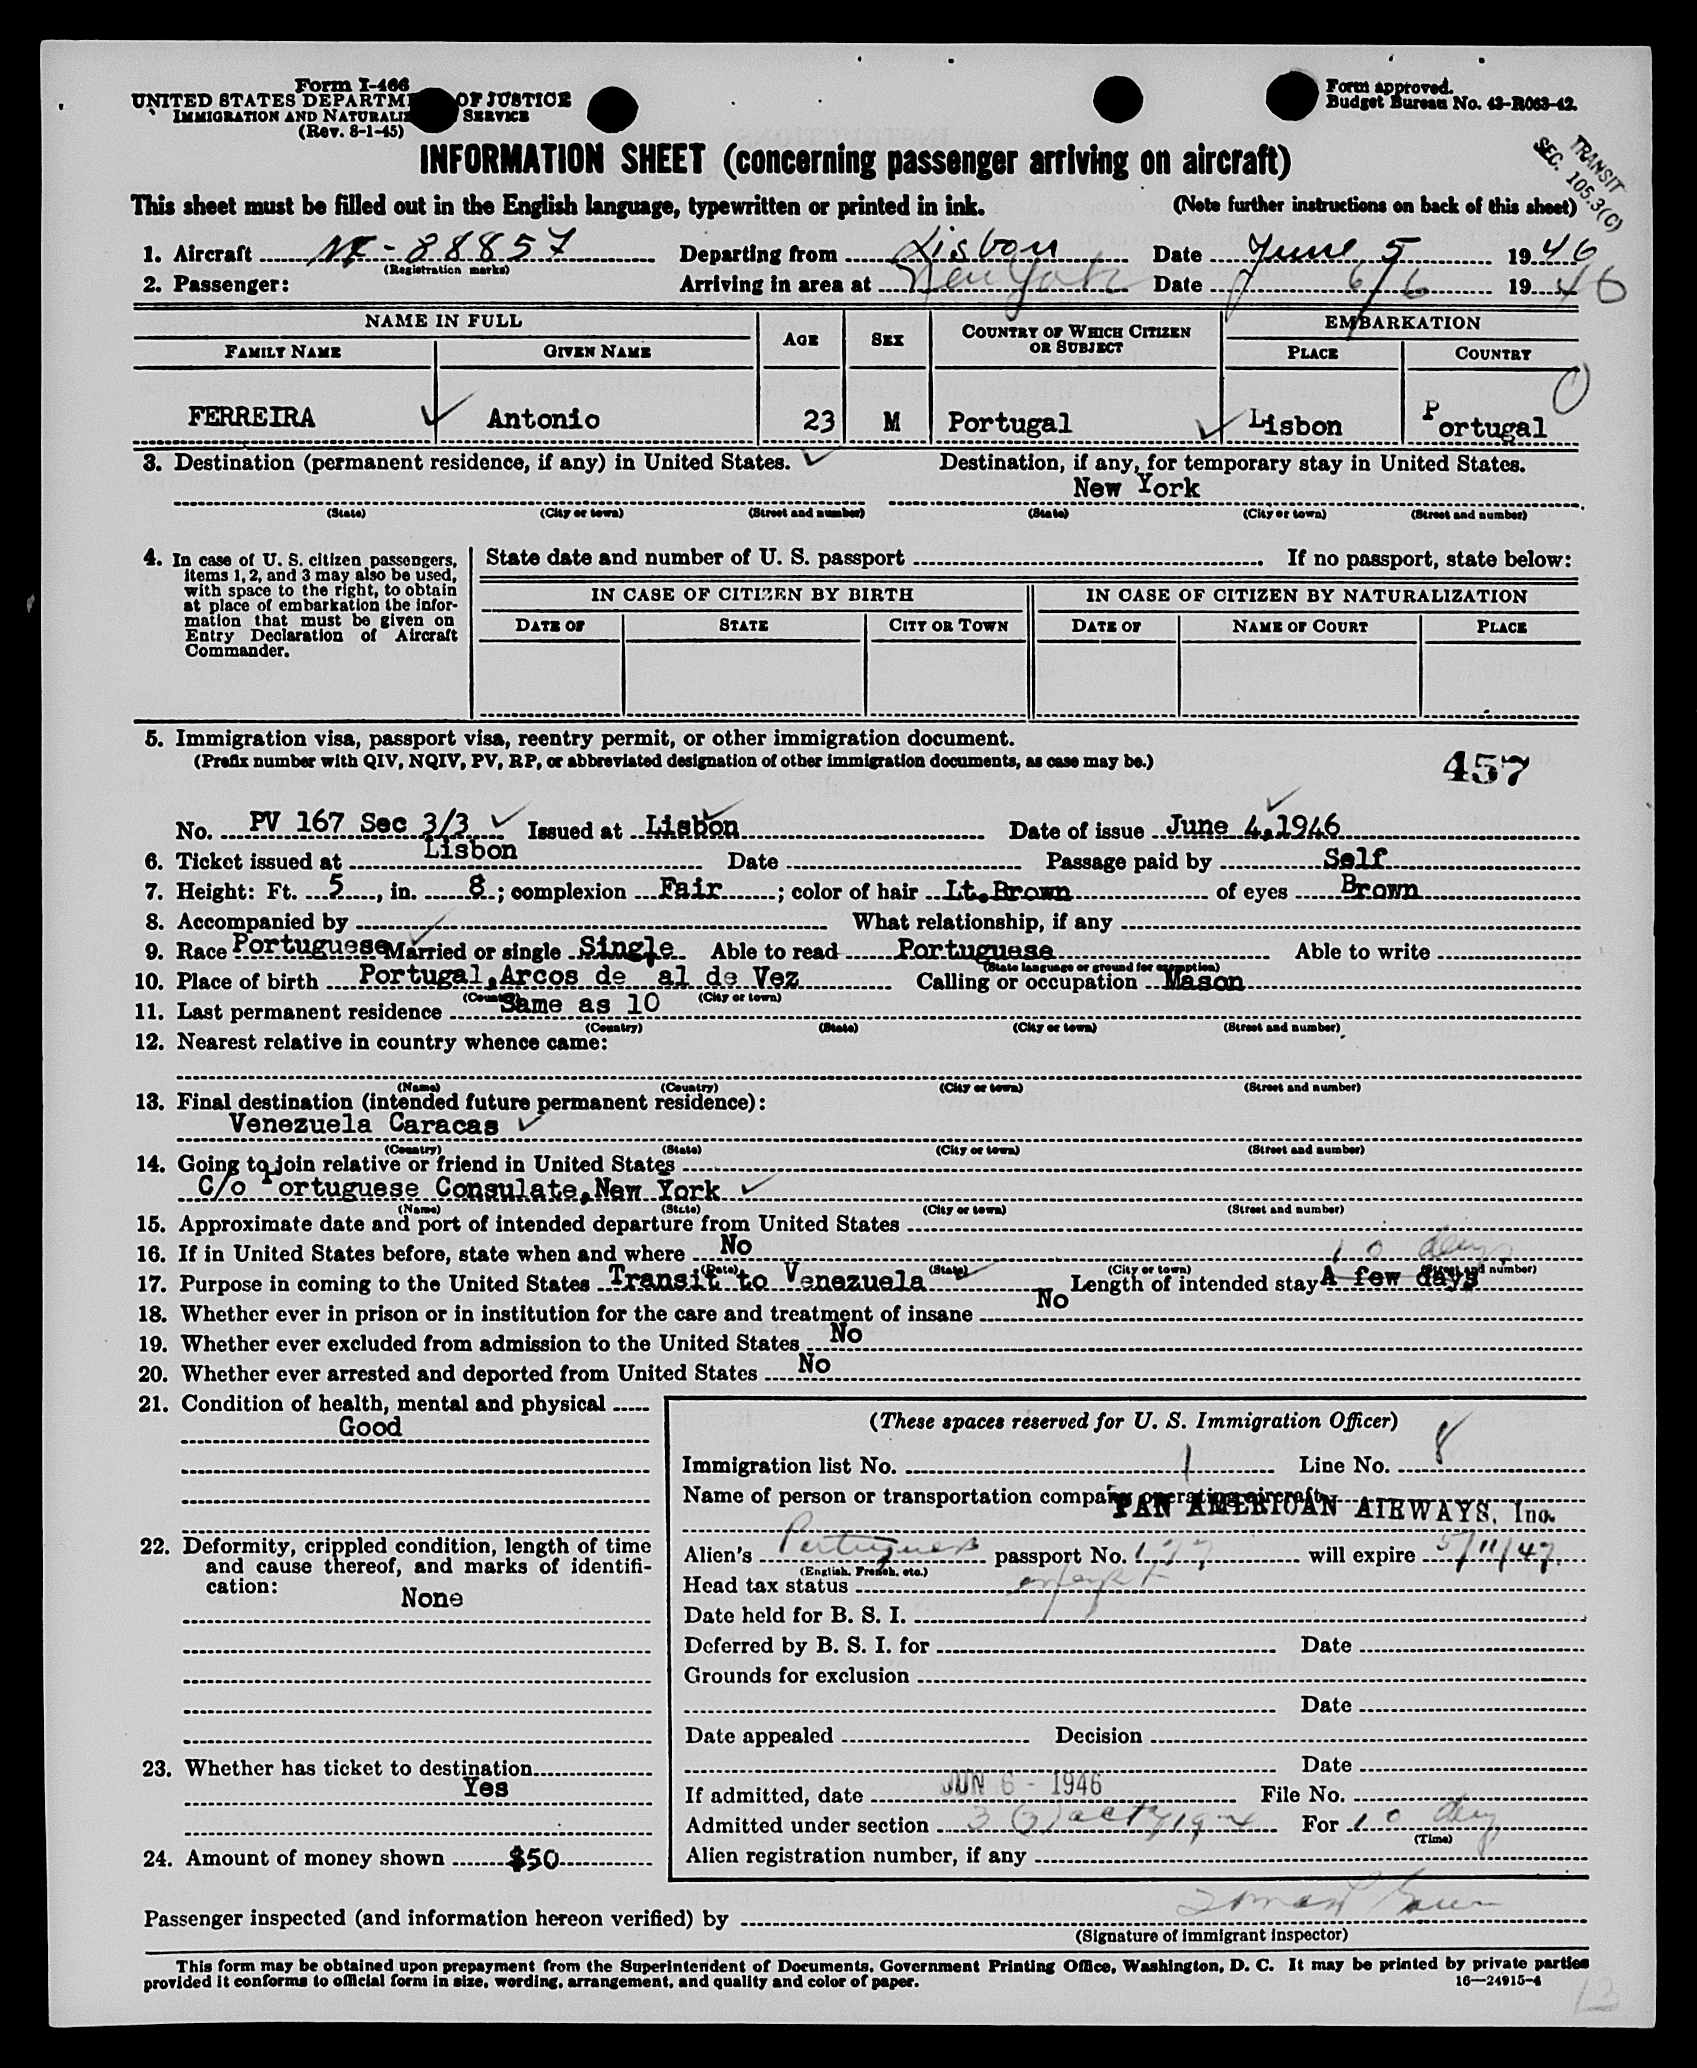 Form I-466
UNITED STATES DEPARTM OF JUSTICE
IMMIGRATION AND NATURALIZ SERVICE
(Rev. 8-1-45)
Form approved.
Budget Bureau No. 43-R063-42.
TRANSIT
SEC. 105.3(C)
INFORMATION SHEET (concerning passenger arriving on aircraft)
This sheet must be filled out in the English language, typewritten or printed in ink. (Note further instructions on back of this sheet)
1. Aircraft NC-88857 Departing from Lisbon Date June 5 1946
(Registration marks)
2. Passenger: Arriving in area at New York Date 6/6 1946
NAME IN FULL AGE SEX COUNTRY OF WHICH CITIZEN OR SUBJECT EMBARKATION
FAMILY NAME GIVEN NAME PLACE COUNTRY
FERREIRA Antonio 23 M Portugal Lisbon Portugal
3. Destination (permanent residence, if any) in United States. Destination, if any, for temporary stay in United States.
New York
(State) (City or town) (Street and number) (State) (City or town) (Street and number)
4. In case of U. S. citizen passengers, items 1, 2, and 3 may also be used, with space to the right, to obtain at place of embarkation the information that must be given on Entry Declaration of Aircraft Commander.
State date and number of U. S. passport If no passport, state below:
IN CASE OF CITIZEN BY BIRTH IN CASE OF CITIZEN BY NATURALIZATION
DATE OF STATE CITY OR TOWN DATE OF NAME OF COURT PLACE
5. Immigration visa, passport visa, reentry permit, or other immigration document.
(Prefix number with QIV, NQIV, PV, RP, or abbreviated designation of other immigration documents, as case may be.)
457
No. PV 167 Sec 3/3 Issued at Lisbon Date of issue June 4,1946
6. Ticket issued at Lisbon Date Passage paid by Self
7. Height: Ft. 5, in. 8; complexion Fair; color of hair Lt.Brown of eyes Brown
8. Accompanied by What relationship, if any
9. Race Portuguese Married or single Single Able to read Portuguese Able to write
(State language or ground for exemption)
10. Place of birth Portugal,Arcos de al de Vez Calling or occupation Mason
(Country) (City or town)
11. Last permanent residence Same as 10
(Country) (State) (City or town) (Street and number)
12. Nearest relative in country whence came:
(Name) (Country) (City or town) (Street and number)
13. Final destination (intended future permanent residence):
Venezuela Caracas
(Country) (State) (City or town) (Street and number)
14. Going to join relative or friend in United States
C/o Portuguese Consulate,New York
(Name) (State) (City or town) (Street and number)
15. Approximate date and port of intended departure from United States
16. If in United States before, state when and where No 10 days
(Date) (State) (City or town) (Street and number)
17. Purpose in coming to the United States Transit to Venezuela Length of intended stay A few days
18. Whether ever in prison or in institution for the care and treatment of insane No
19. Whether ever excluded from admission to the United States No
20. Whether ever arrested and deported from United States No
21. Condition of health, mental and physical
Good
22. Deformity, crippled condition, length of time and cause thereof, and marks of identification:
None
23. Whether has ticket to destination
Yes
24. Amount of money shown $50
(These spaces reserved for U. S. Immigration Officer)
Immigration list No. 1 Line No. 8
Name of person or transportation company operating aircraft
PAN AMERICAN AIRWAYS, Inc.
Alien's Portuguese passport No. 177 will expire 5/11/47
(English, French, etc.)
Head tax status exempt
Date held for B. S. I.
Deferred by B. S. I. for Date
Grounds for exclusion
Date
Date appealed Decision
Date
If admitted, date JUN 6 - 1946 File No.
Admitted under section 3 (3) act 1924 For 10 days
(Time)
Alien registration number, if any
Passenger inspected (and information hereon verified) by
(Signature of immigrant inspector)
This form may be obtained upon prepayment from the Superintendent of Documents, Government Printing Office, Washington, D. C. It may be printed by private parties
provided it conforms to official form in size, wording, arrangement, and quality and color of paper. 16—24915-4
13